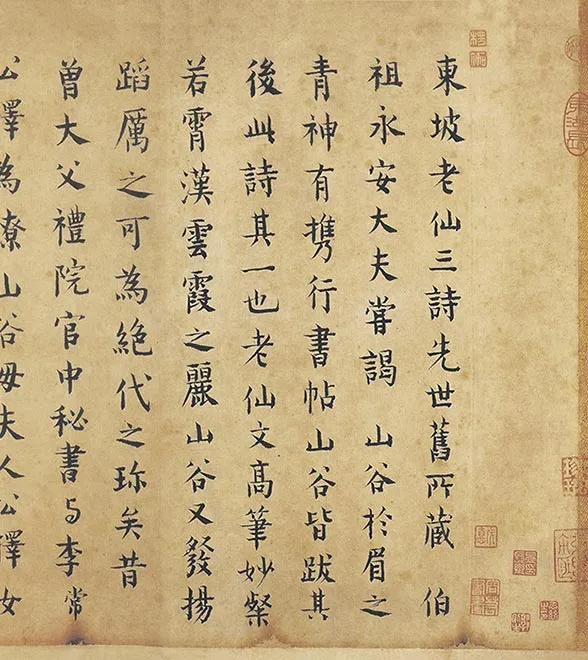 東坡老仙三詩先世舊所藏 伯
祖永安大夫嘗謁 山谷於眉之
青神有攜行書帖山谷皆跋其
後此詩其一也老仙文高筆妙粲
若霄漢雲霞之麗山谷又發揚
蹈厲之可為絕代之珍矣昔
曾大父禮院官中秘書与李常
公擇為寮山谷母夫人公擇女